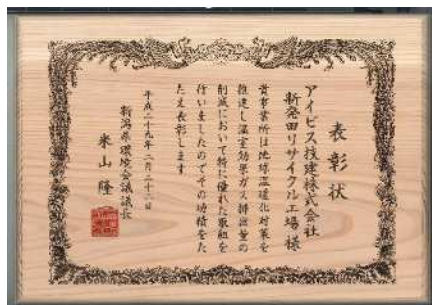 表彰状
アイビス技建株式会社
新発田リサイクル工場様
貴事業所は地球温暖化対策を
推進し温室効果ガス排出量の
削減において特に優れた取組を
行いましたのでその功績をた
たえ表彰します
平成二十九年二月二十二日
新潟県環境会議議長
米山隆